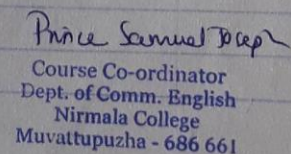 Prince Samuel Joseph
Course Co-ordinator
Dept. of Comm. English
Nirmala College
Muvattupuzha - 686 661